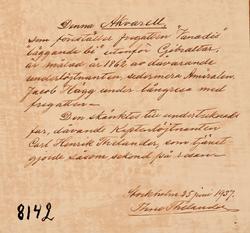 Denna Akvarell,
som föreställer fregatten "Vanadis"
läggande bi utanför Gibraltar,
är målad år 1862 av dåvarande
underlöjtnanten, sedermera Amiralen
Jacob Hägg under långresa med
fregatten.
Den skänktes till undertecknads
far, dåvande Kaptenlöjtnanten
Carl Henrik Thelander, som tjänst-
gjorde såsom sekond på
Stockholm 25 juni 1937.
Thelander
8142